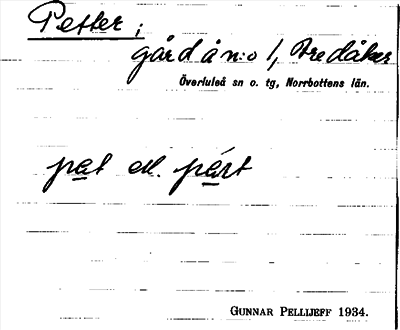 Petter;
gård å n:o 1, Bredåker
Överluleå sn o. tg, Norrbottens län.
pat el. párt
GUNNAR PELLIJEFF 1934.